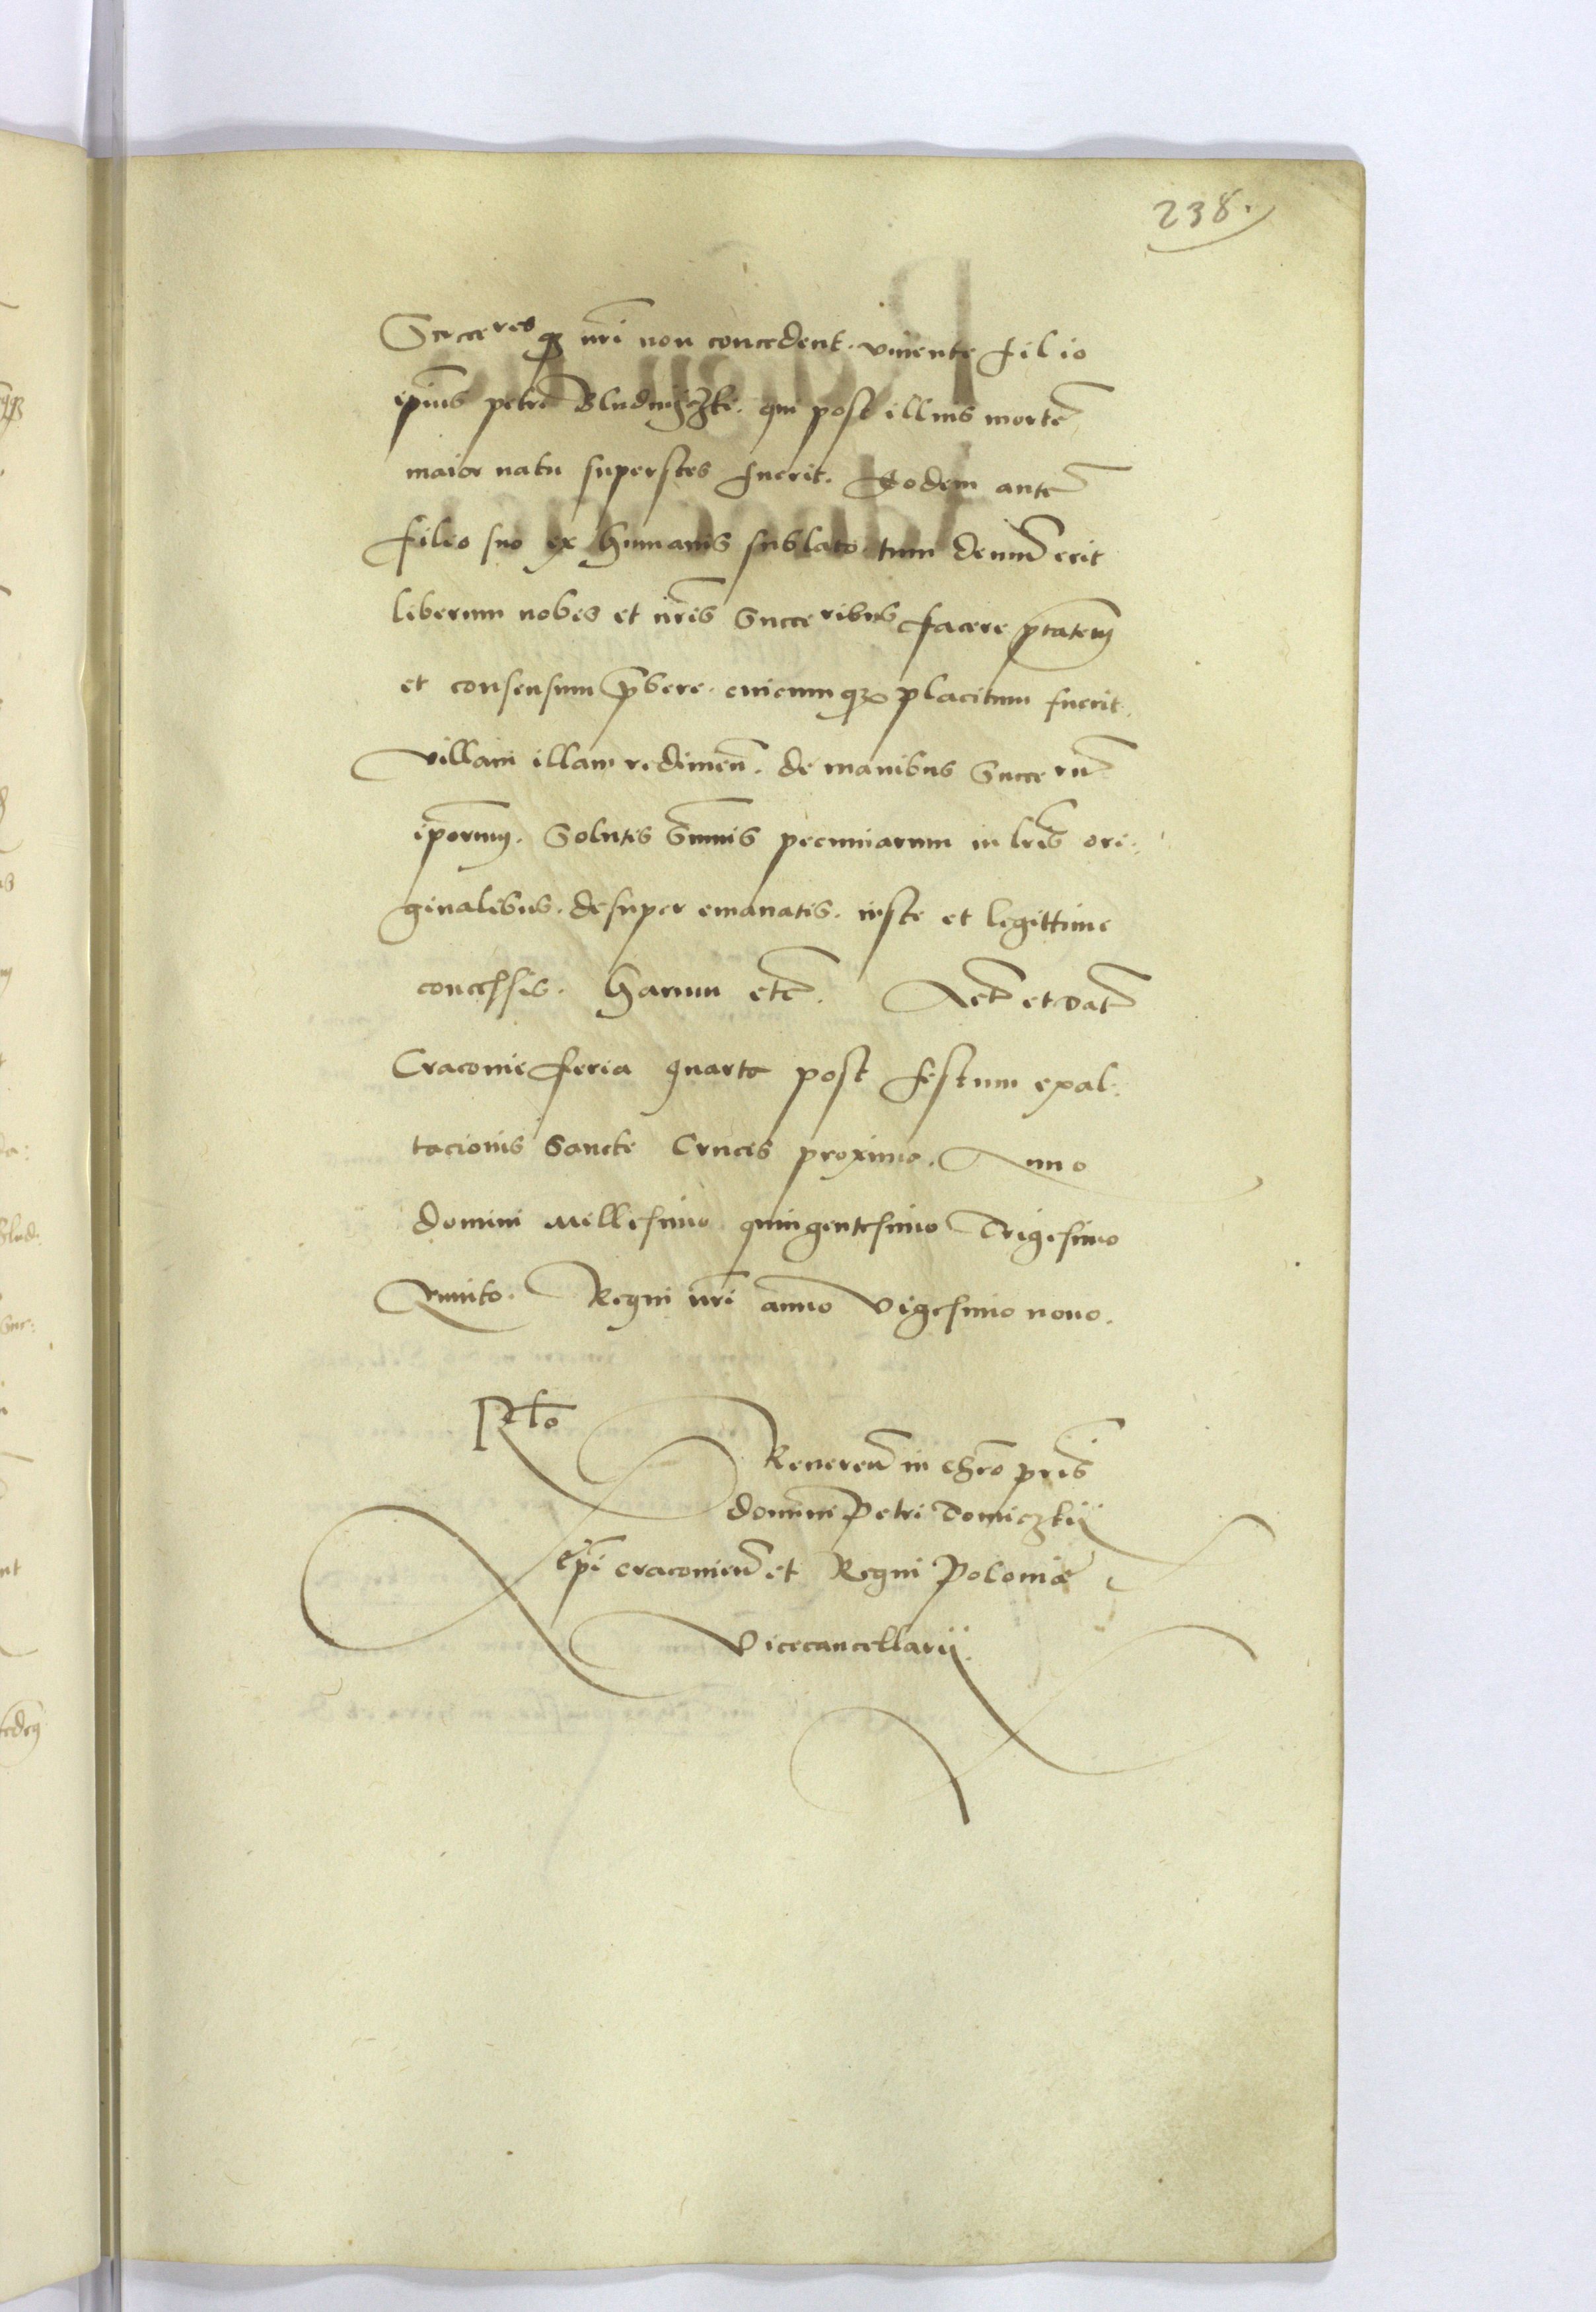 238.
Succeresq3 nri non concedent. viuente filio
ipius petri Bludnyczki. qui post illius morte
maior natu superstes fuerit. Eodem aute
filio suo ex humanis sublato. tum demu erit
liberum nobis et nris Succeribus facere ptatem
et consensum pbere. cuicumq3 placitum fuerit.
villam illam redimen. de manibus Succeru
iporum. Solutis Summis pecuniarum in lris ori:
ginalibus. desuper emanatis. iuste et legittime
concessis. Harum etc. Act et Dat
Cracouie feria quarta post festum exal:
tacionis Sancte Crucis proximo. Anno
domini Millesimo quingentesimo Trigesimo
Quinto. Regni nri anno Vigesimo nono.
Rlo
Reueren in chro pris
domini Petri Tomiczkij
Epi cracouien et Regni Poloniæ
Vicecancellarij.